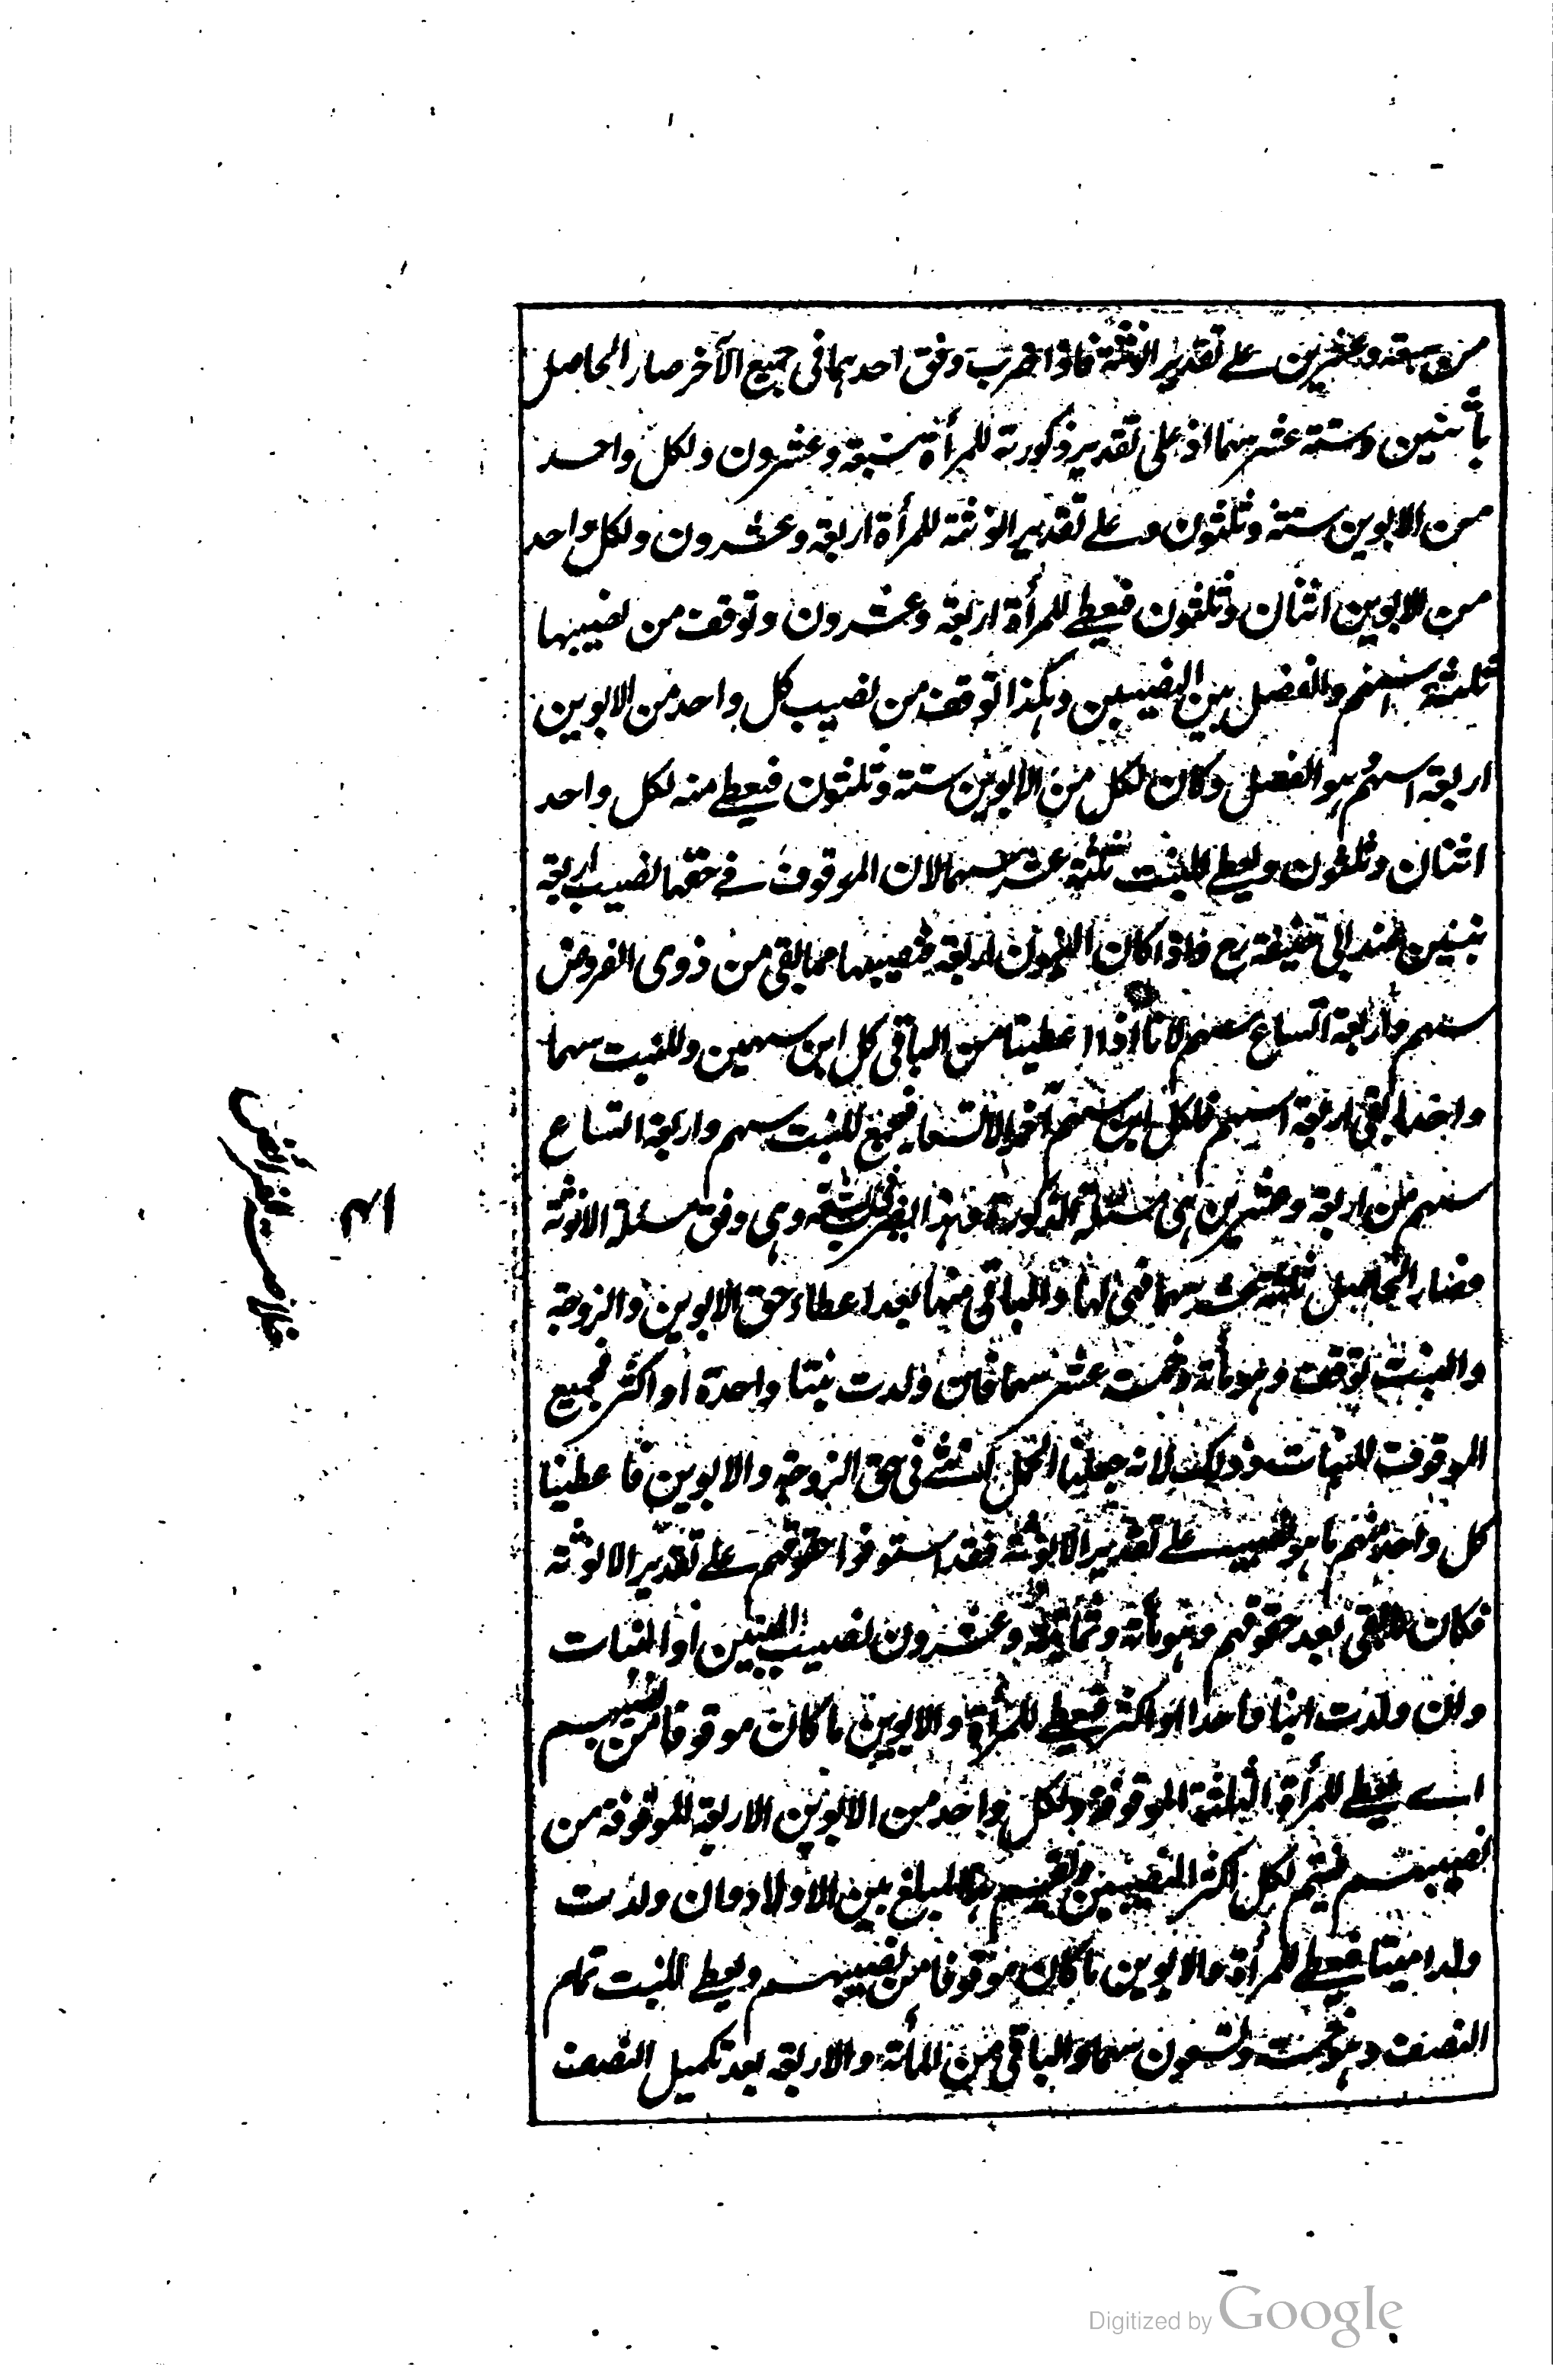 من سبعة وعشرين على تقدير انوثته فاذا ضرب وفق احدهما فى جميع الآخر صار الحاصل
مأتين وستة عشر سهما اذ على تقدير ذكورته للمرأة سبعة وعشرون ولكل واحد
من الابوين ستة وثلثون وعلى تقدير انوثته للمرأة اربعة وعشرون ولكل واحد
من الابوين اثنان وثلثون فيعطى للمرأة اربعة وعشرون وتوقف من نصيبها
ثلثة اسهم والفضل بين النصيبين وهكذا توقف من نصيب كل واحد من الابوين
اربعة اسهم هو الفضل وكان لكل من الابوين ستة وثلثون فيعطى منه لكل واحد
اثنان وثلثون ويعطى للبنت ثلثة عشر سهما لان الموقوف فى حقها نصيب اربعة
بنين عند ابى حنيفة رح فاذا كان البنون اربعة فنصيبها مما بقى من ذوى الفروض
سهم واربعة اتساع سهم لانا اذا اعطينا من الباقى كل ابن سهمين وللبنت سهما
واحدا بقى اربعة اسهم فلكل ابن سهم آخر الا تسعا فجمع للبنت سهم واربعة اتساع
سهم من اربعة وعشرين هى مسئلة الذكورة وهذا يضرب فى تسعة وهى وفق مسئلة الانوثة
فصار الحاصل ثلثة عشر سهما فهى لها والباقى منها بعد اعطاء حق الابوين والزوجة
والبنت توقف وهو مأة وخمسة عشر سهما فان ولدت بنتا واحدة او اكثر فجميع
الموقوف للبنات وذلك لانه جعلنا الحمل انثى فى حق الزوجة والابوين فاعطينا
كل واحد منهم ما هو نصيبه على تقدير الانوثة فقد استوفوا حقوقهم على تقدير الانوثة
فكان الباقى بعد حقوقهم وهو مأة وثمانية وعشرون نصيب البنتين او البنات
وان ولدت ابنا واحدا او اكثر فيعطى للمرأة والابوين ما كان موقوفا من نصيبهم
اى يعطى للمرأة الثلثة الموقوفة ولكل واحد من الابوين الاربعة الموقوفة من
نصيبهم فيتم لكل اكثر النصيبين ويقسم المبلغ بين الاولاد وان ولدت
ولدا ميتا فيعطى للمرأة والابوين ما كان موقوفا من نصيبهم ويعطى للبنت تمام
النصف وهو خمسة وتسعون سهما والباقى من المأة والاربعة بعد تكميل النصف
خلاصة الفرائض